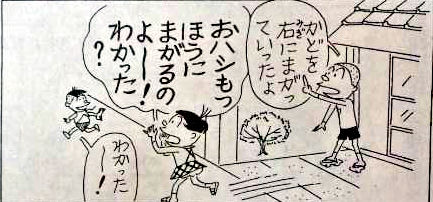 かどを
右にまがっ
ていったよ
おハシもつ
ほうに
まがるの
よ〜!
わかった
?
わかった
〜!